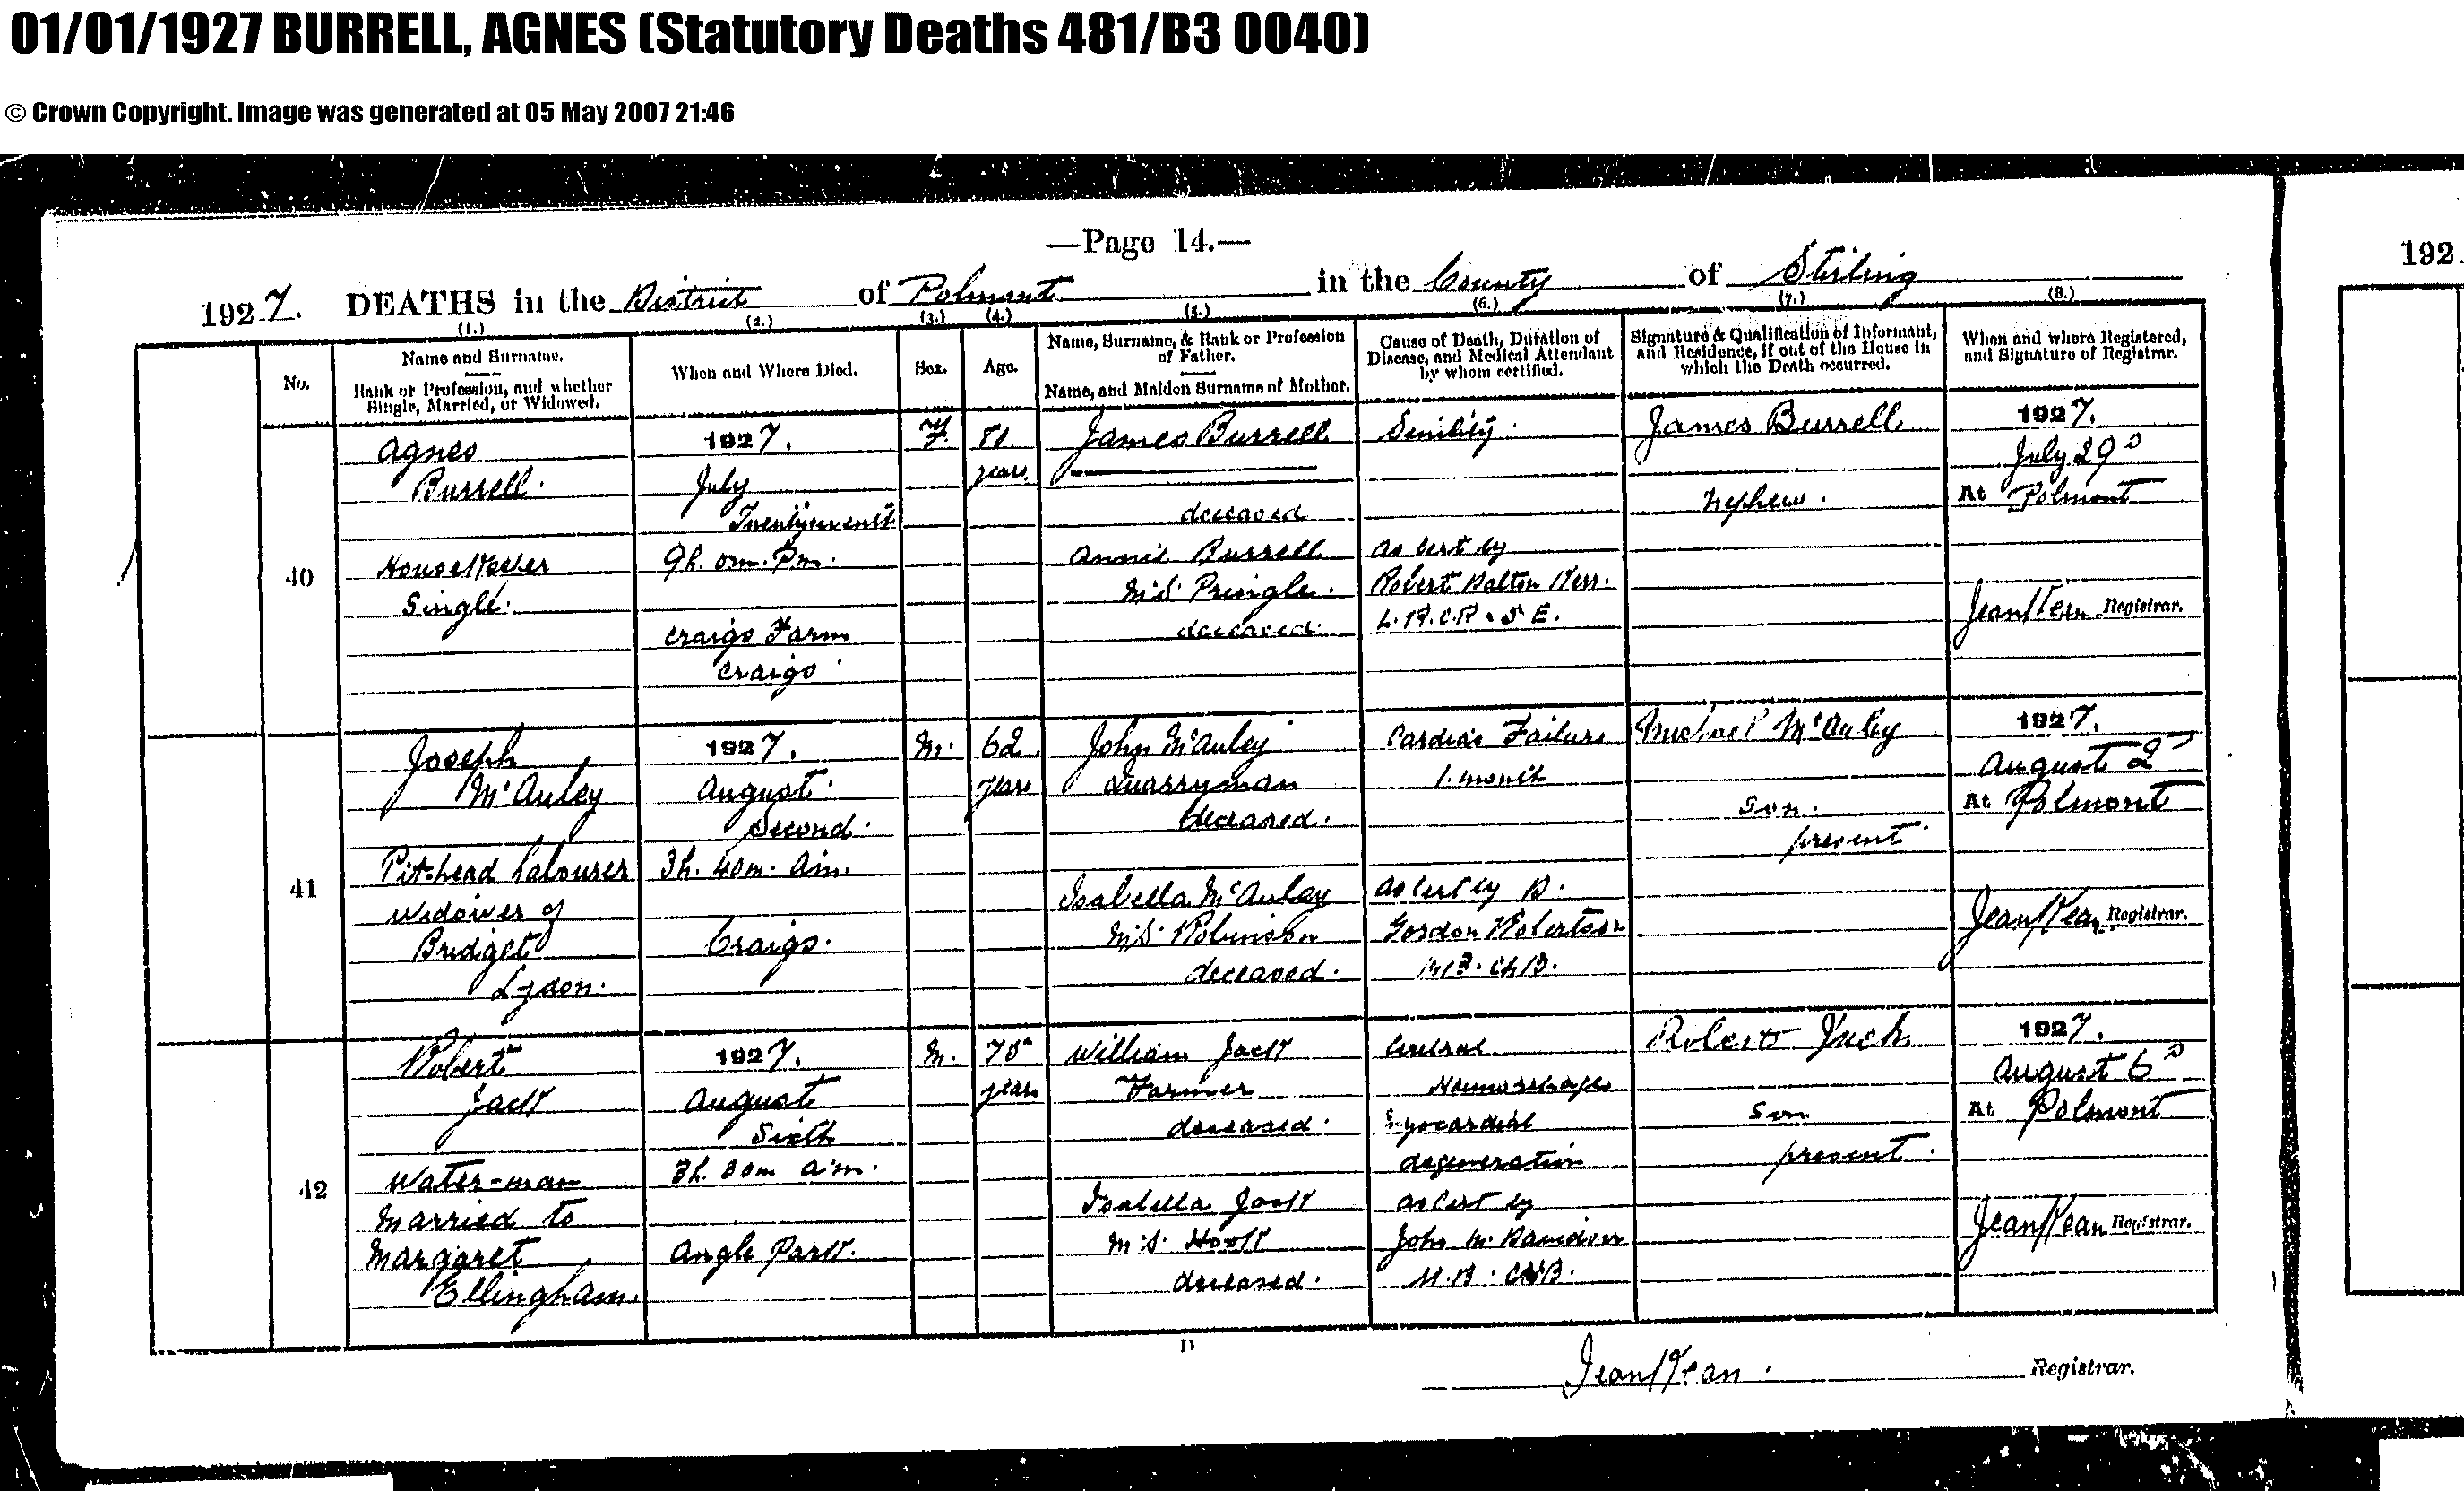 01/01/1927 BURRELL, AGNES (Statutory Deaths 481/B3 0040)
© Crown Copyright. Image was generated at 05 May 2007 21:46
—Page 14.—
1927. DEATHS in the District of Polmont in the County of Stirling
192
(1.) (2.) (3.) (4.) (5.) (6.) (7.) (8.)
No.
Name and Surname.
Rank or Profession, and whether
Single, Married, or Widowed.
When and Where Died.
Sex.
Age.
Name, Surname, & Rank or Profession
of Father.
Name, and Maiden Surname of Mother.
Cause of Death, Duration of
Disease, and Medical Attendant
by whom certified.
Signature & Qualification of Informant,
and Residence, if out of the House in
which the Death occurred.
When and where Registered,
and Signature of Registrar.
40
Agnes
Burrell.
Housekeeper
Single.
1927.
July
9h. 0m. P.m.
Craigs Farm
Craigs
F.
81
years
James Burrell
deceased
Annie Burrell
M.S. Pringle.
deceased.
Senility.
As cert by
Robert Dalton Kerr.
L.R.C.P. & S E.
James Burrell
Nephew.
1927.
July 29
At Polmont
Jean Kean Registrar.
41
Joseph
McAuley
Pit-head Labourer
Widower of
Bridget
Lydon.
1927.
August
Second.
3h. 40m. a.m.
Craigs.
M.
62
years
John McAuley
Quarryman
deceased.
Isabella McAuley
M.S. Robinson
deceased.
Cardiac Failure
1. month
As cert by D.
Gordon Robertson
M.B. Ch B.
Michael McAuley
Son.
present.
1927.
August 2
At Polmont
Jean Kean Registrar.
42
Robert
Jack
Water-man
Married to
Margaret
Ellingham.
1927.
August
Sixth
3h. 30m a.m.
Angle Park.
M.
years
William Jack
Farmer
deceased.
Isabella Jack
M.S.
deceased.
Cerebral
Haemorrhage
degeneration
As cert by
John M. Davidson
M.B. Ch.B.
Robert Jack
Son
present.
1927.
August 6
At Polmont
Jean Kean Registrar.
D
Jean Kean. Registrar.